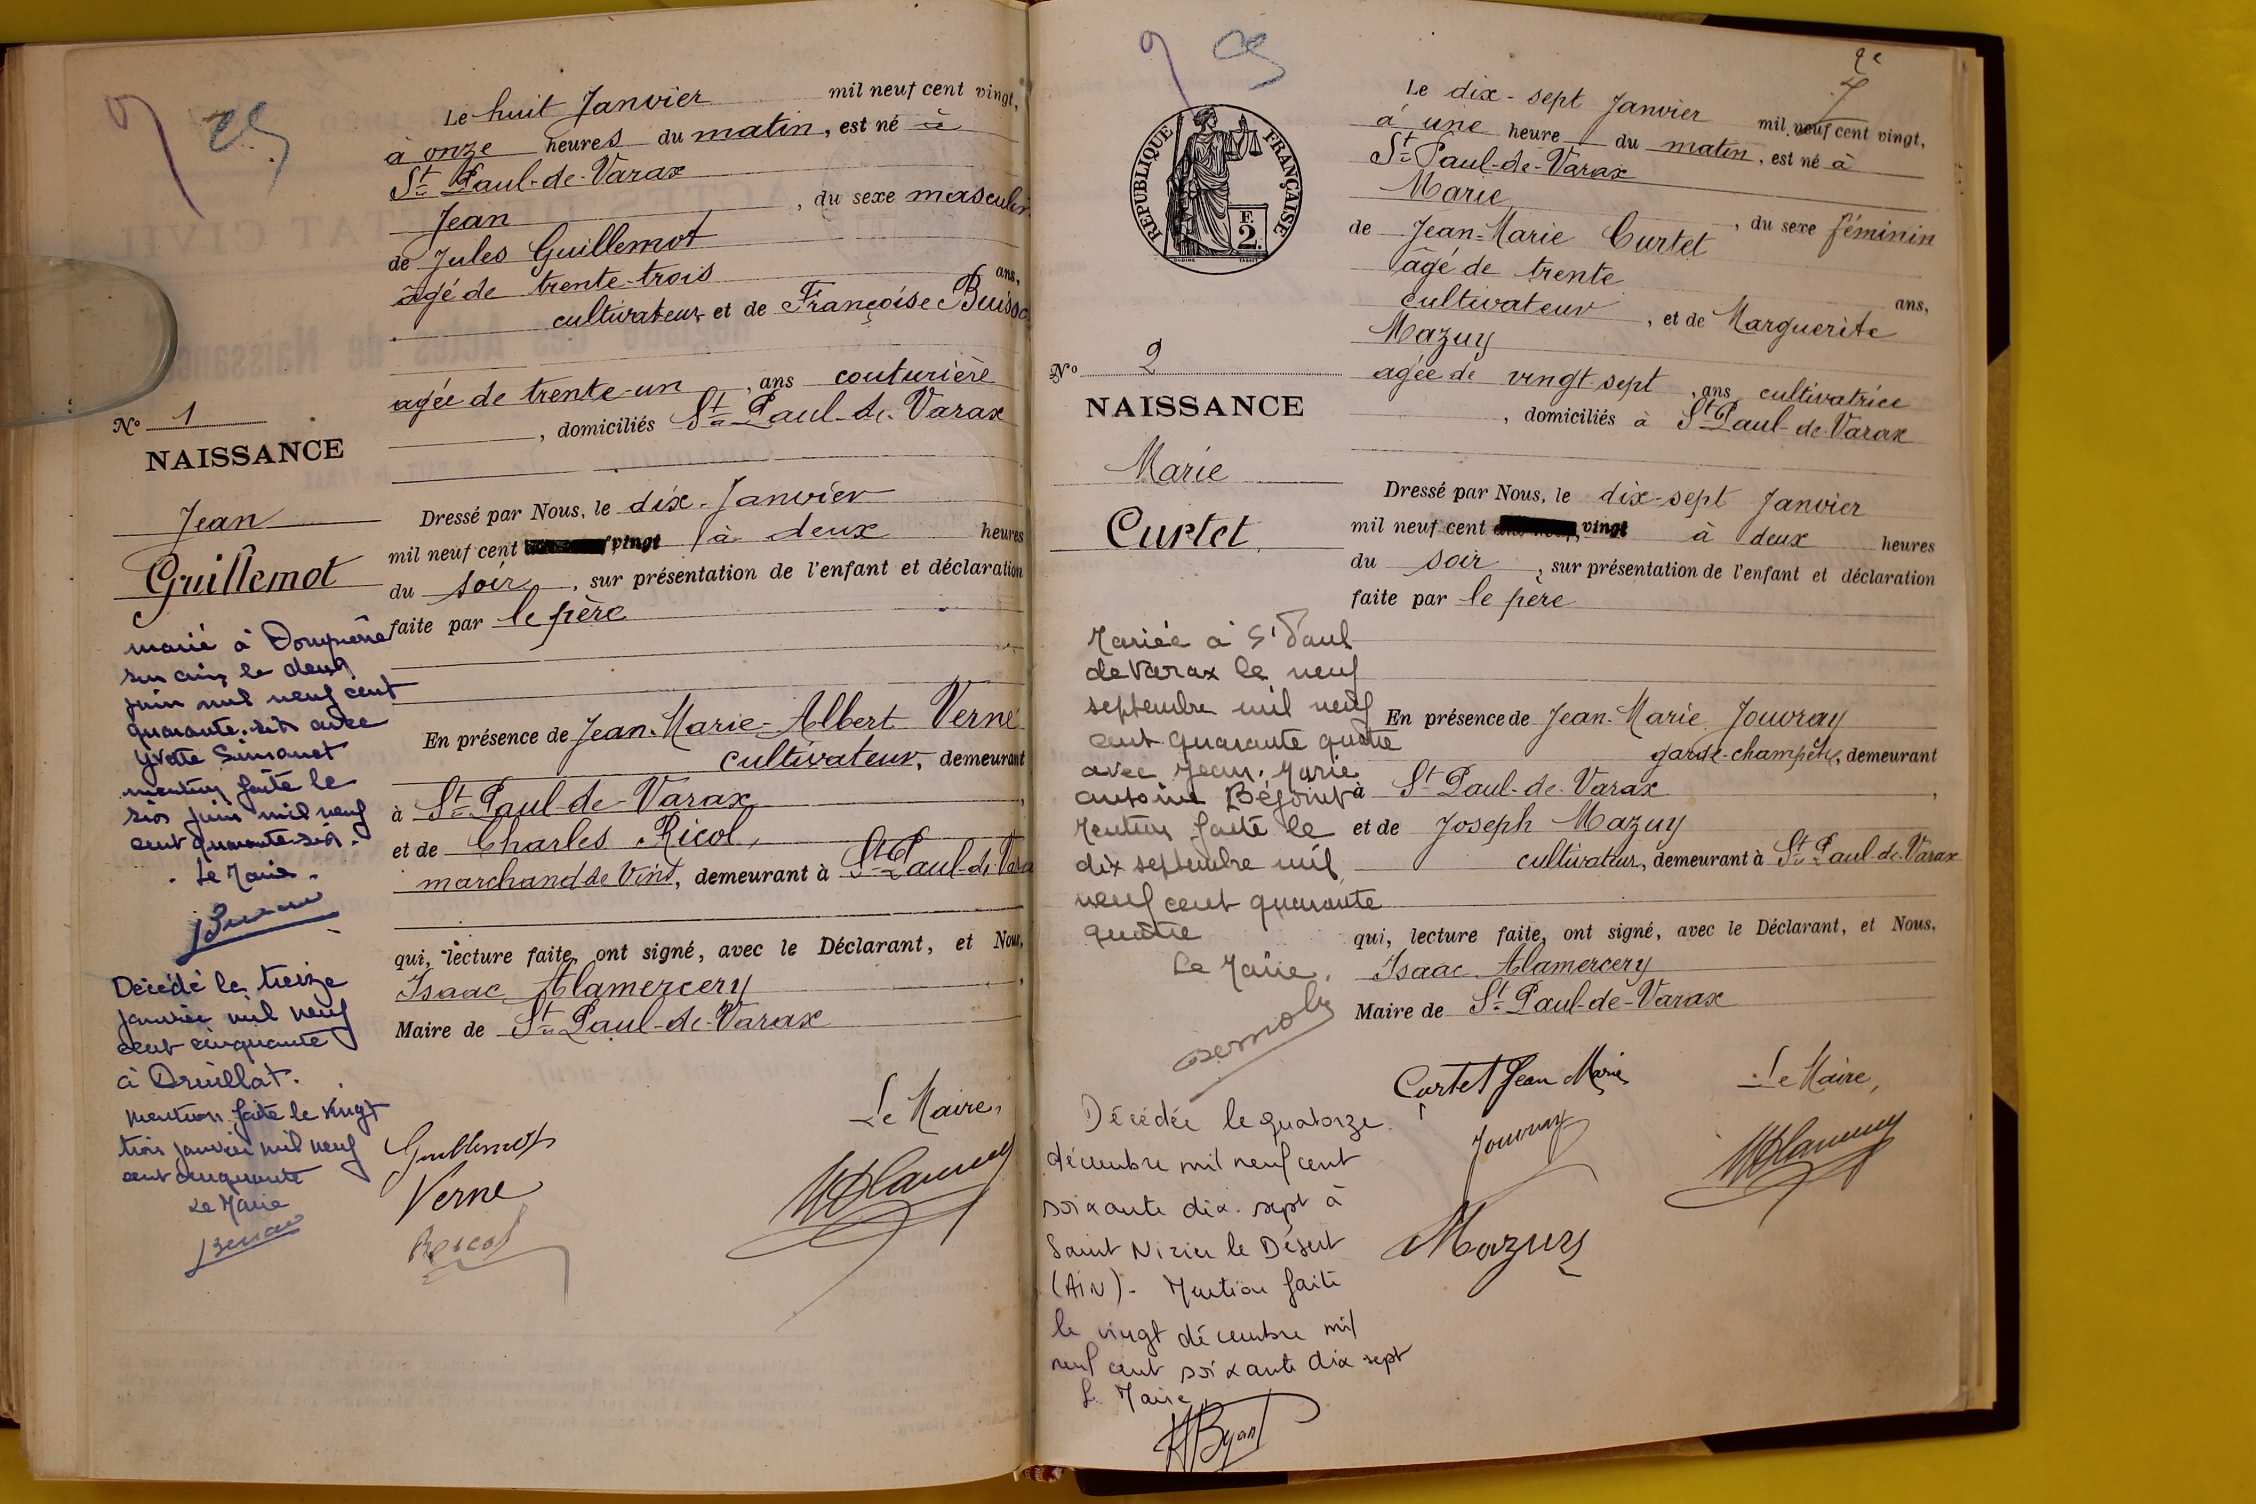 Le huit Janvier mil neuf cent vingt,
à onze heures du matin, est né à
St Paul-de-Varax
Jean, du sexe masculin
de Jules Guillemot
âgé de trente-trois ans,
cultivateur et de Françoise
agée de trente-un, ans couturière
, domiciliés St Paul-de-Varax
No 1
NAISSANCE
Jean
Guillemot
Dressé par Nous, le dix Janvier
mil neuf cent vingt à deux heures
du soir, sur présentation de l'enfant et déclaration
faite par le père
En présence de Jean-Marie-Albert Verne
cultivateur, demeurant
à St Paul-de-Varax,
et de Charles Ricol,
marchand de Vins, demeurant à St Paul-de-Vara
qui, lecture faite, ont signé, avec le Déclarant, et Nous,
Isaac Alamercery,
Maire de St Paul-de-Varax
Le Maire,
Guillemot
Verne
marié à Dompierre
sur ain, le deux
juin mil neuf cent
quarante-six avec
Yvette Simonet
mention faite le
six juin mil neuf
cent quarante-six.
Le Maire.
Décédé le treize
janvier mil neuf
cent cinquante
à Druillat.
Mention faite le vingt
trois janvier mil neuf
cent cinquante
Le Maire
2e
RÉPUBLIQUE FRANÇAISE
F.
2.
Le dix-sept Janvier mil neuf cent vingt,
à une heure du matin, est né à
St Paul-de-Varax
Marie, du sexe féminin
de Jean-Marie Curtet
âgé de trente ans,
cultivateur, et de Marguerite
Mazuy
agée de vingt-sept, ans cultivatrice
, domiciliés à St Paul-de-Varax
No 2
NAISSANCE
Marie
Curtet
Dressé par Nous, le dix-sept Janvier
mil neuf cent vingt à deux heures
du soir, sur présentation de l'enfant et déclaration
faite par le père
En présence de Jean-Marie Jouvray
garde-champêtre, demeurant
à St Paul-de-Varax,
et de Joseph Mazuy
cultivateur, demeurant à St Paul-de-Varax
qui, lecture faite, ont signé, avec le Déclarant, et Nous,
Isaac Alamercery
Maire de St Paul-de-Varax
Curtet Jean Marie
Le Maire,
Jouvray
Mazuy
Mariée à St Paul
de Varax le neuf
septembre mil neuf
cent quarante quatre
avec Jean-Marie
antoine Béjoint
Mention faite le
dix septembre mil
neuf cent quarante
quatre
Le Maire.
Décédée le quatorze
décembre mil neuf cent
soixante dix-sept à
Saint Nizier le Désert
(AIN). Mention faite
le vingt décembre mil
neuf cent soixante dix sept
Le Maire